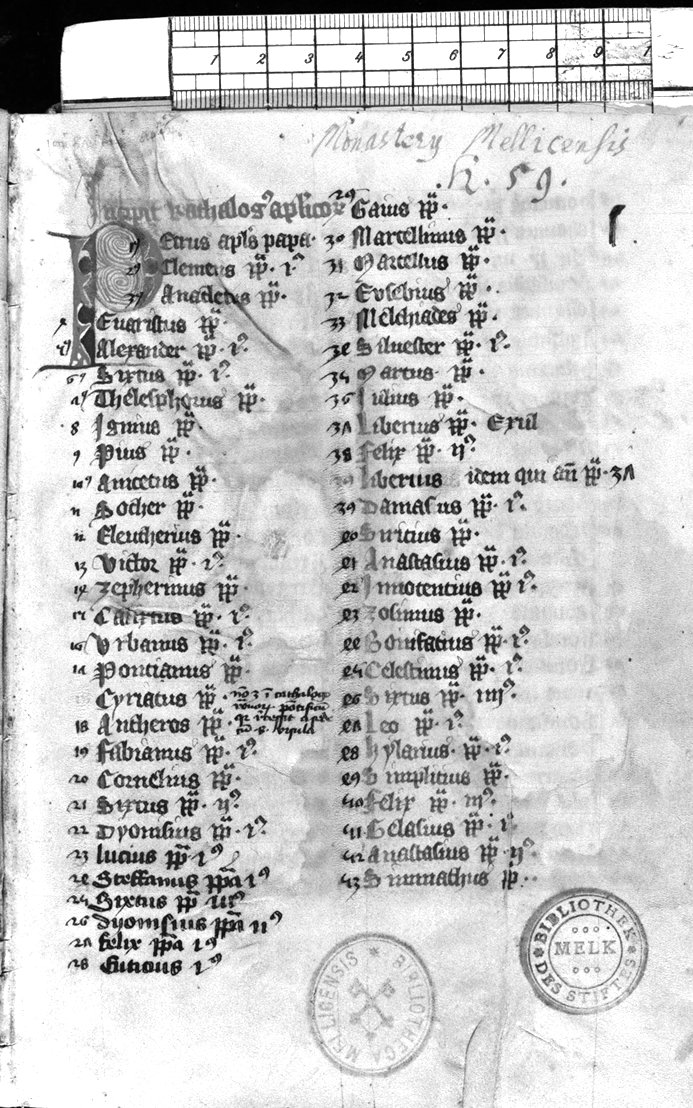 1 2 3 4 5 6 7 8 9 1
Monastery Mellicensis
N. 59.
Incipit kathalog᷒ aplicoꝝ
1 Petrus apl̄s papa.
2 Clemens pp̄. i᷒
3 Anacletus pp̄.
4 Euaristus pp̄.
5 Alexander pp̄. i᷒.
6 Sixtus pp̄. i᷒.
7 Thelesphorus pp̄.
8 Iginius pp̄.
9 Pius pp̄.
10 Anicetus pp̄.
11 Socher pp̄.
12 Eleutherius pp̄.
13 Victor pp̄. i᷒.
14 Zepherinus pp̄.
15 Calixtus pp̄. i᷒.
16 Vrbanus pp̄. i᷒.
17 Pontianus pp̄.
Cyriacus pp̄.
18 Antheros pp̄.
19 Fabianus pp̄.
20 Cornelius pp̄.
21 Sixtus pp̄. ii᷒.
22 Dyonisius pp̄. i᷒.
23 lucius pp̄ i᷒
24 Steffanus pp̄a i᷒
25 Sixtus pp̄ iii᷒
26 dyonisius pp̄a ii᷒
27 felix pp̄a i᷒
28 Euticius i᷒
29 Gaius pp̄.
30 Marcellinus pp̄.
31 Marcellus pp̄.
32 Eusebius pp̄.
33 Melchiades pp̄.
34 Siluester pp̄. i᷒.
35 Marcus pp̄.
36 Iulius pp̄.
37 Liberius pp̄. Exul
38 Felix pp̄. ii᷒.
39 Liberius idem qui an̄ pp̄. 37
39 Damasus pp̄. i᷒.
40 Siricius pp̄.
41 Anastasius pp̄. i᷒.
42 Innocentius pp̄ i᷒.
43 Zosimus pp̄.
44 Bonifacius pp̄. i᷒.
45 Celestinus pp̄. i᷒.
46 Sixtus pp̄. iiii᷒.
47 Leo pp̄. i᷒.
48 hylarius. pp̄. i᷒.
49 Simplicius pp̄.
410 Felix pp̄. iii᷒.
411 Gelasius pp̄. i᷒.
412 Anastasius pp̄ ii᷒.
413 Simmachus pp.
BIBLIOTHECA MELLICENSIS
BIBLIOTHEK DES STIFTES
MELK